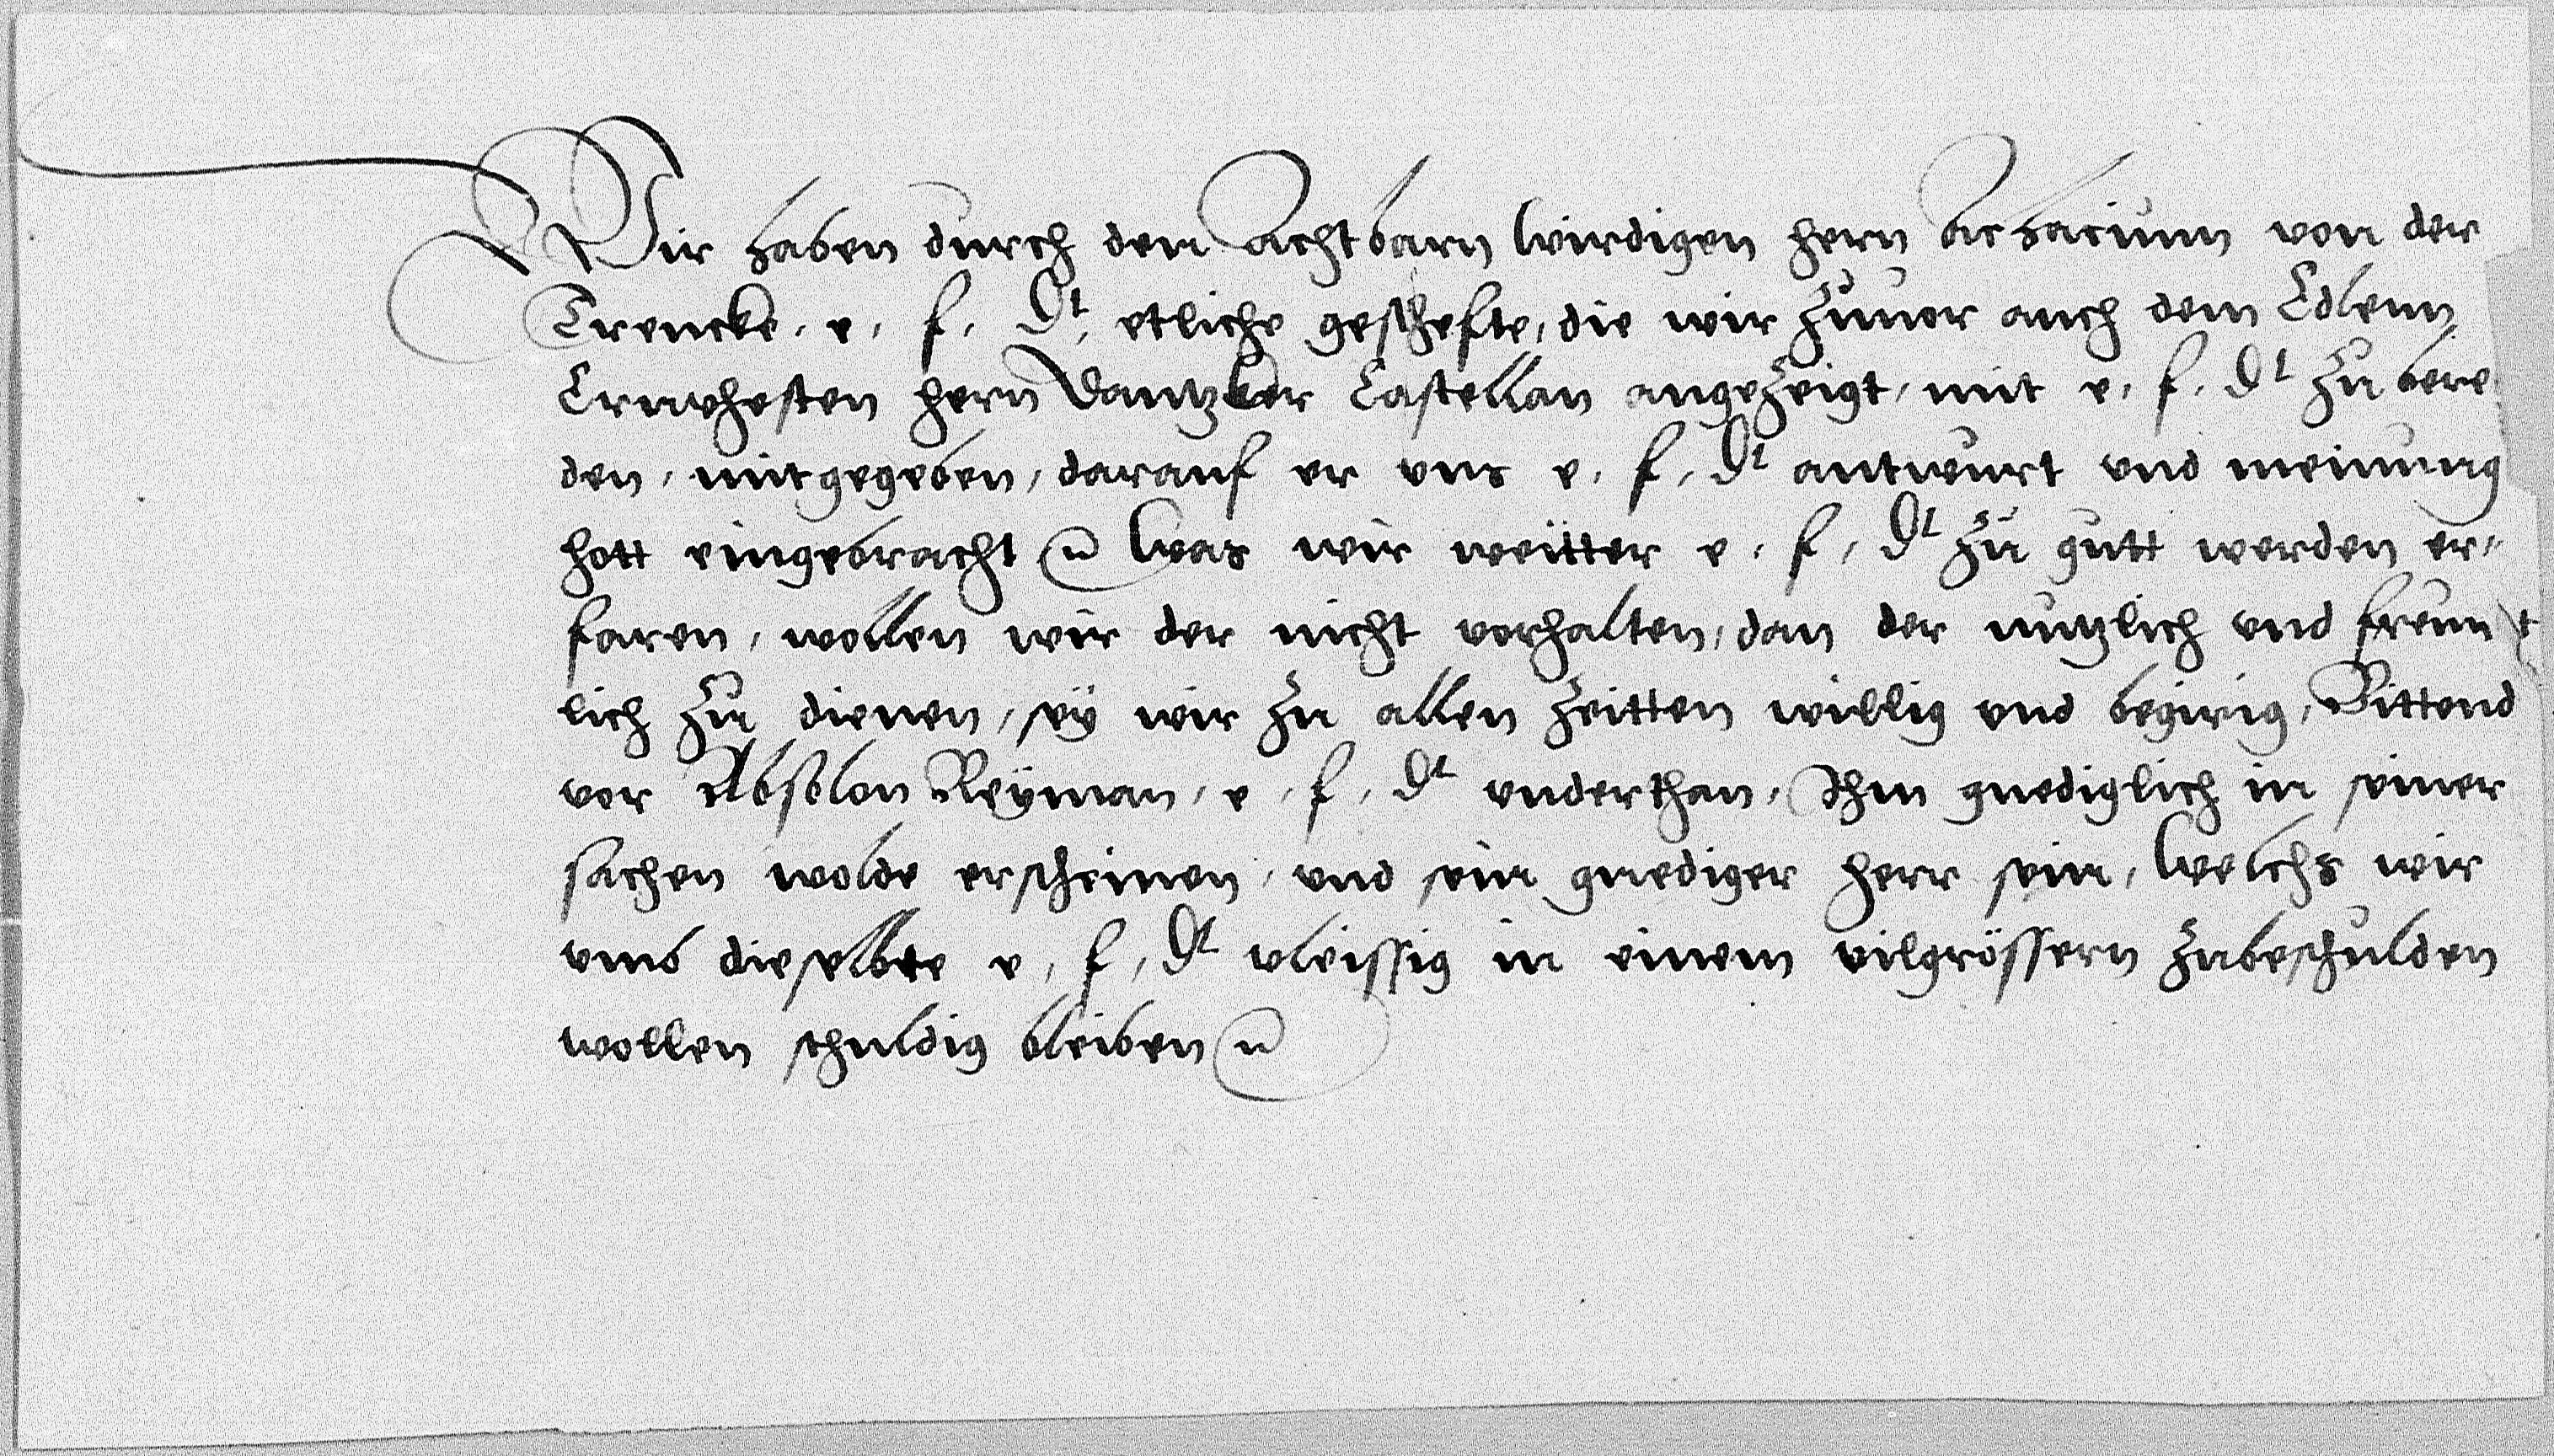 Wir haben durch den Achtbarn wirdigen hern Achacium von der
Trencke, e, f, Dt, etliche geschefte, die wir zuuor auch dem Edlenn
Ernvhesten hern Dantzker Castellan angezeigt, mit e, f, Dt zu bere
den, mitgegeben, darauf er vns e, f, Dt antwurt vnd meinung
hott eingebracht Was wir weitter e, f, Dt zu gutt werden er-
faren, wollen wir der nicht vorhalten, dan der nutzlich vnd freunt
lich zu dienen, sey wir zu allen zeitten willig vnd begirig, Bittend
vor Absolon Reyman, e, f, Dt vnderthan, Ihm gnediglich in seiner
sachen wolde erscheinen, vnd sein gnediger herr sein, Welchs wir
vmb dieselbte e, f, Dt vleissig in einem vilgrössern zubeschulden
wollen schuldig bleiben